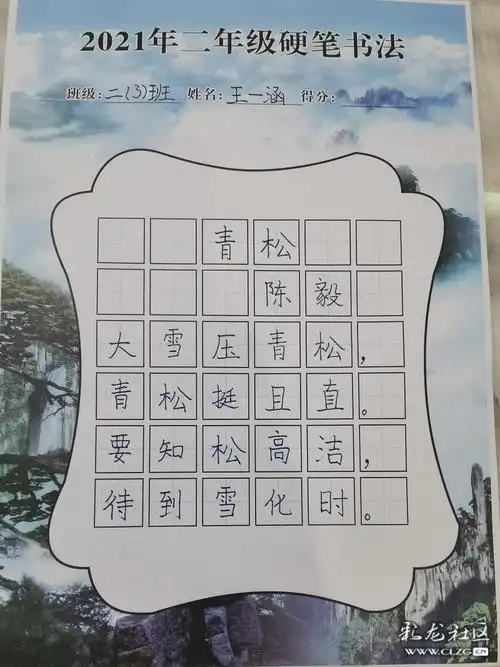 2021年二年级硬笔书法
班级:二(3)班 姓名:王一涵 得分:
青松
陈毅
大雪压青松,
青松挺且直。
要知松高洁,
待到雪化时。
彩龙社区
WWW.CLZG.CN